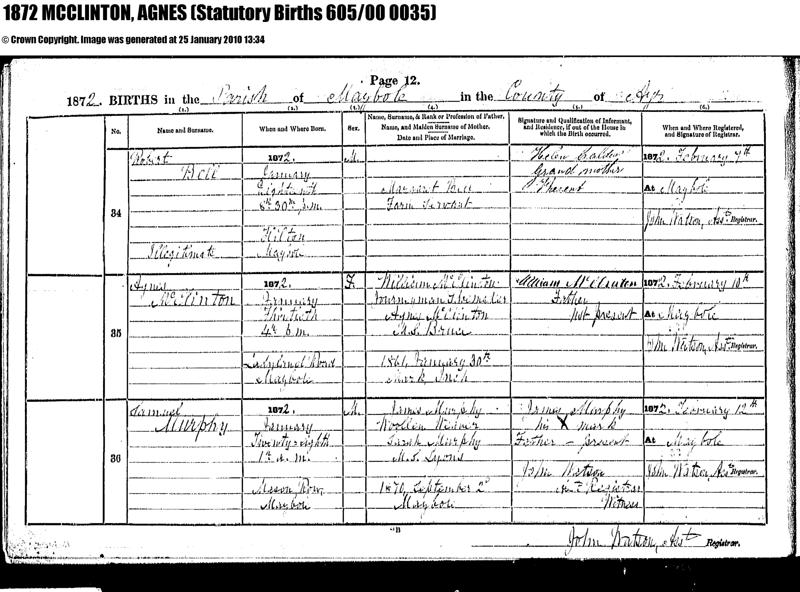 1872 MCCLINTON, AGNES (Statutory Births 605/00 0035)
© Crown Copyright. Image was generated at 25 January 2010 13:34
Page 12.
1872. BIRTHS in the Parish of Maybole in the County of Ayr
(1.) (2.) (3.) (4.) (5.) (6.)
No. Name and Surname. When and Where Born. Sex. Name, Surname, & Rank or Profession of Father. Name, and Maiden Surname of Mother. Date and Place of Marriage. Signature and Qualification of Informant, and Residence, if out of the House in which the Birth occurred. When and Where Registered, and Signature of Registrar.
34
Robert
Bell
Illegitimate
1872.
January
Eighteenth
8h 30m p.m.
Kilton
Maybole
M.
Margaret Bell
Farm Servant
Helen
Grandmother
Present
1872. February 7th
At Maybole
John Watson, Asst Registrar.
35
Agnes
McClinton
1872.
January
Thirtieth
4h p.m.
Ladyland Road
Maybole
F.
William McClinton
Journeyman Shoemaker
Agnes McClinton
M.S. Bruce
January 30th
William McClinton
Father
not present
1872. February 10th
At Maybole
John Watson, Asst Registrar.
36
Samuel
Murphy
1872.
January
Twenty-eighth
1h a.m.
Mason Row
Maybole
M.
James Murphy
Woollen Weaver
Sarah Murphy
M.S. Lyons
1870, September 2d
Maybole
James Murphy
his X mark
Father - present
John Watson
Asst Registrar
Witness
1872. February 12th
At Maybole
John Watson, Asst Registrar.
"B
John Watson, Asst Registrar.